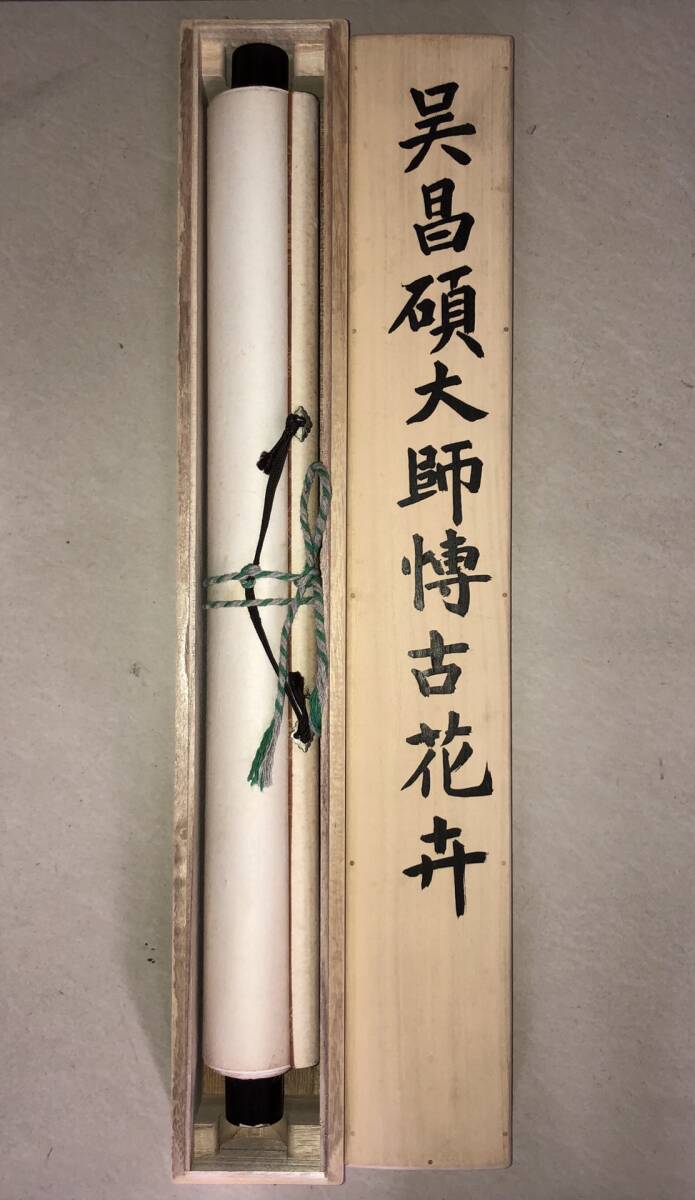 吴昌碩大師博古花卉